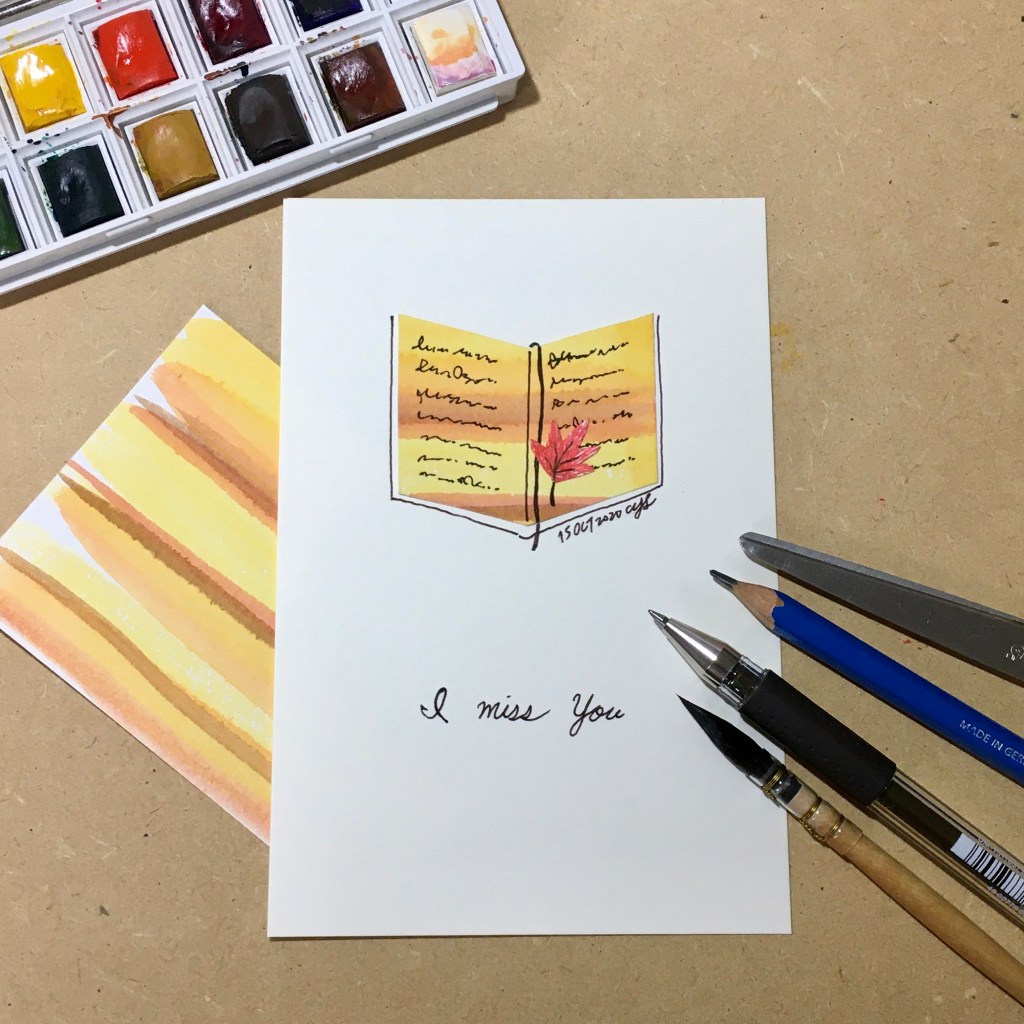 15 OCT 2020 cys
I miss You
MADE IN GER